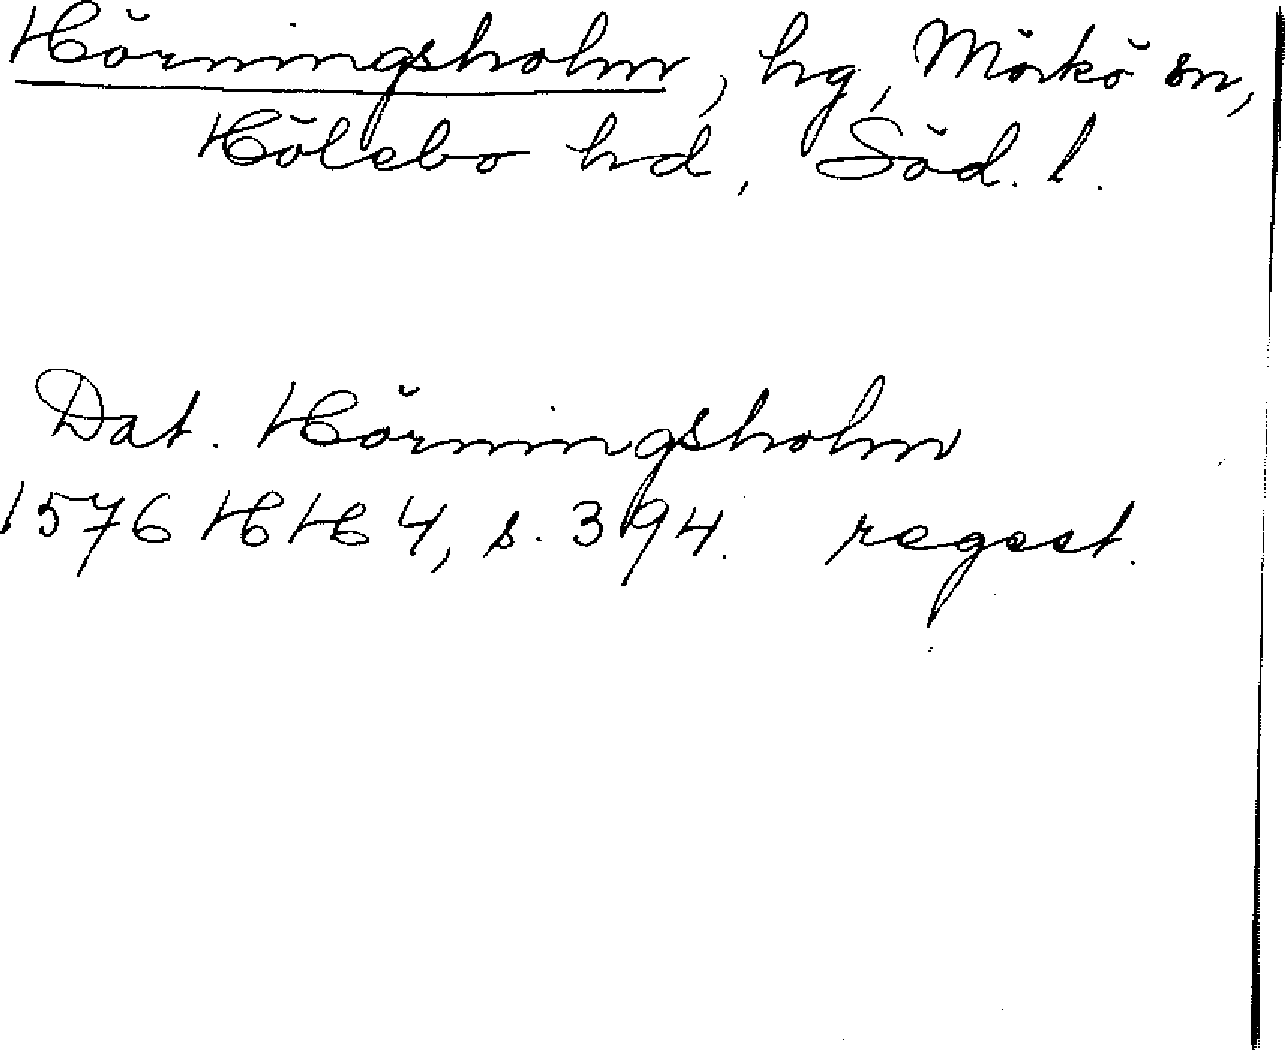 Hörningsholm, hg, Mörkö sn,
Hölebo hd, Söd. l.
Dat. Hörningsholm
1576 HH 4, s. 394. regest.